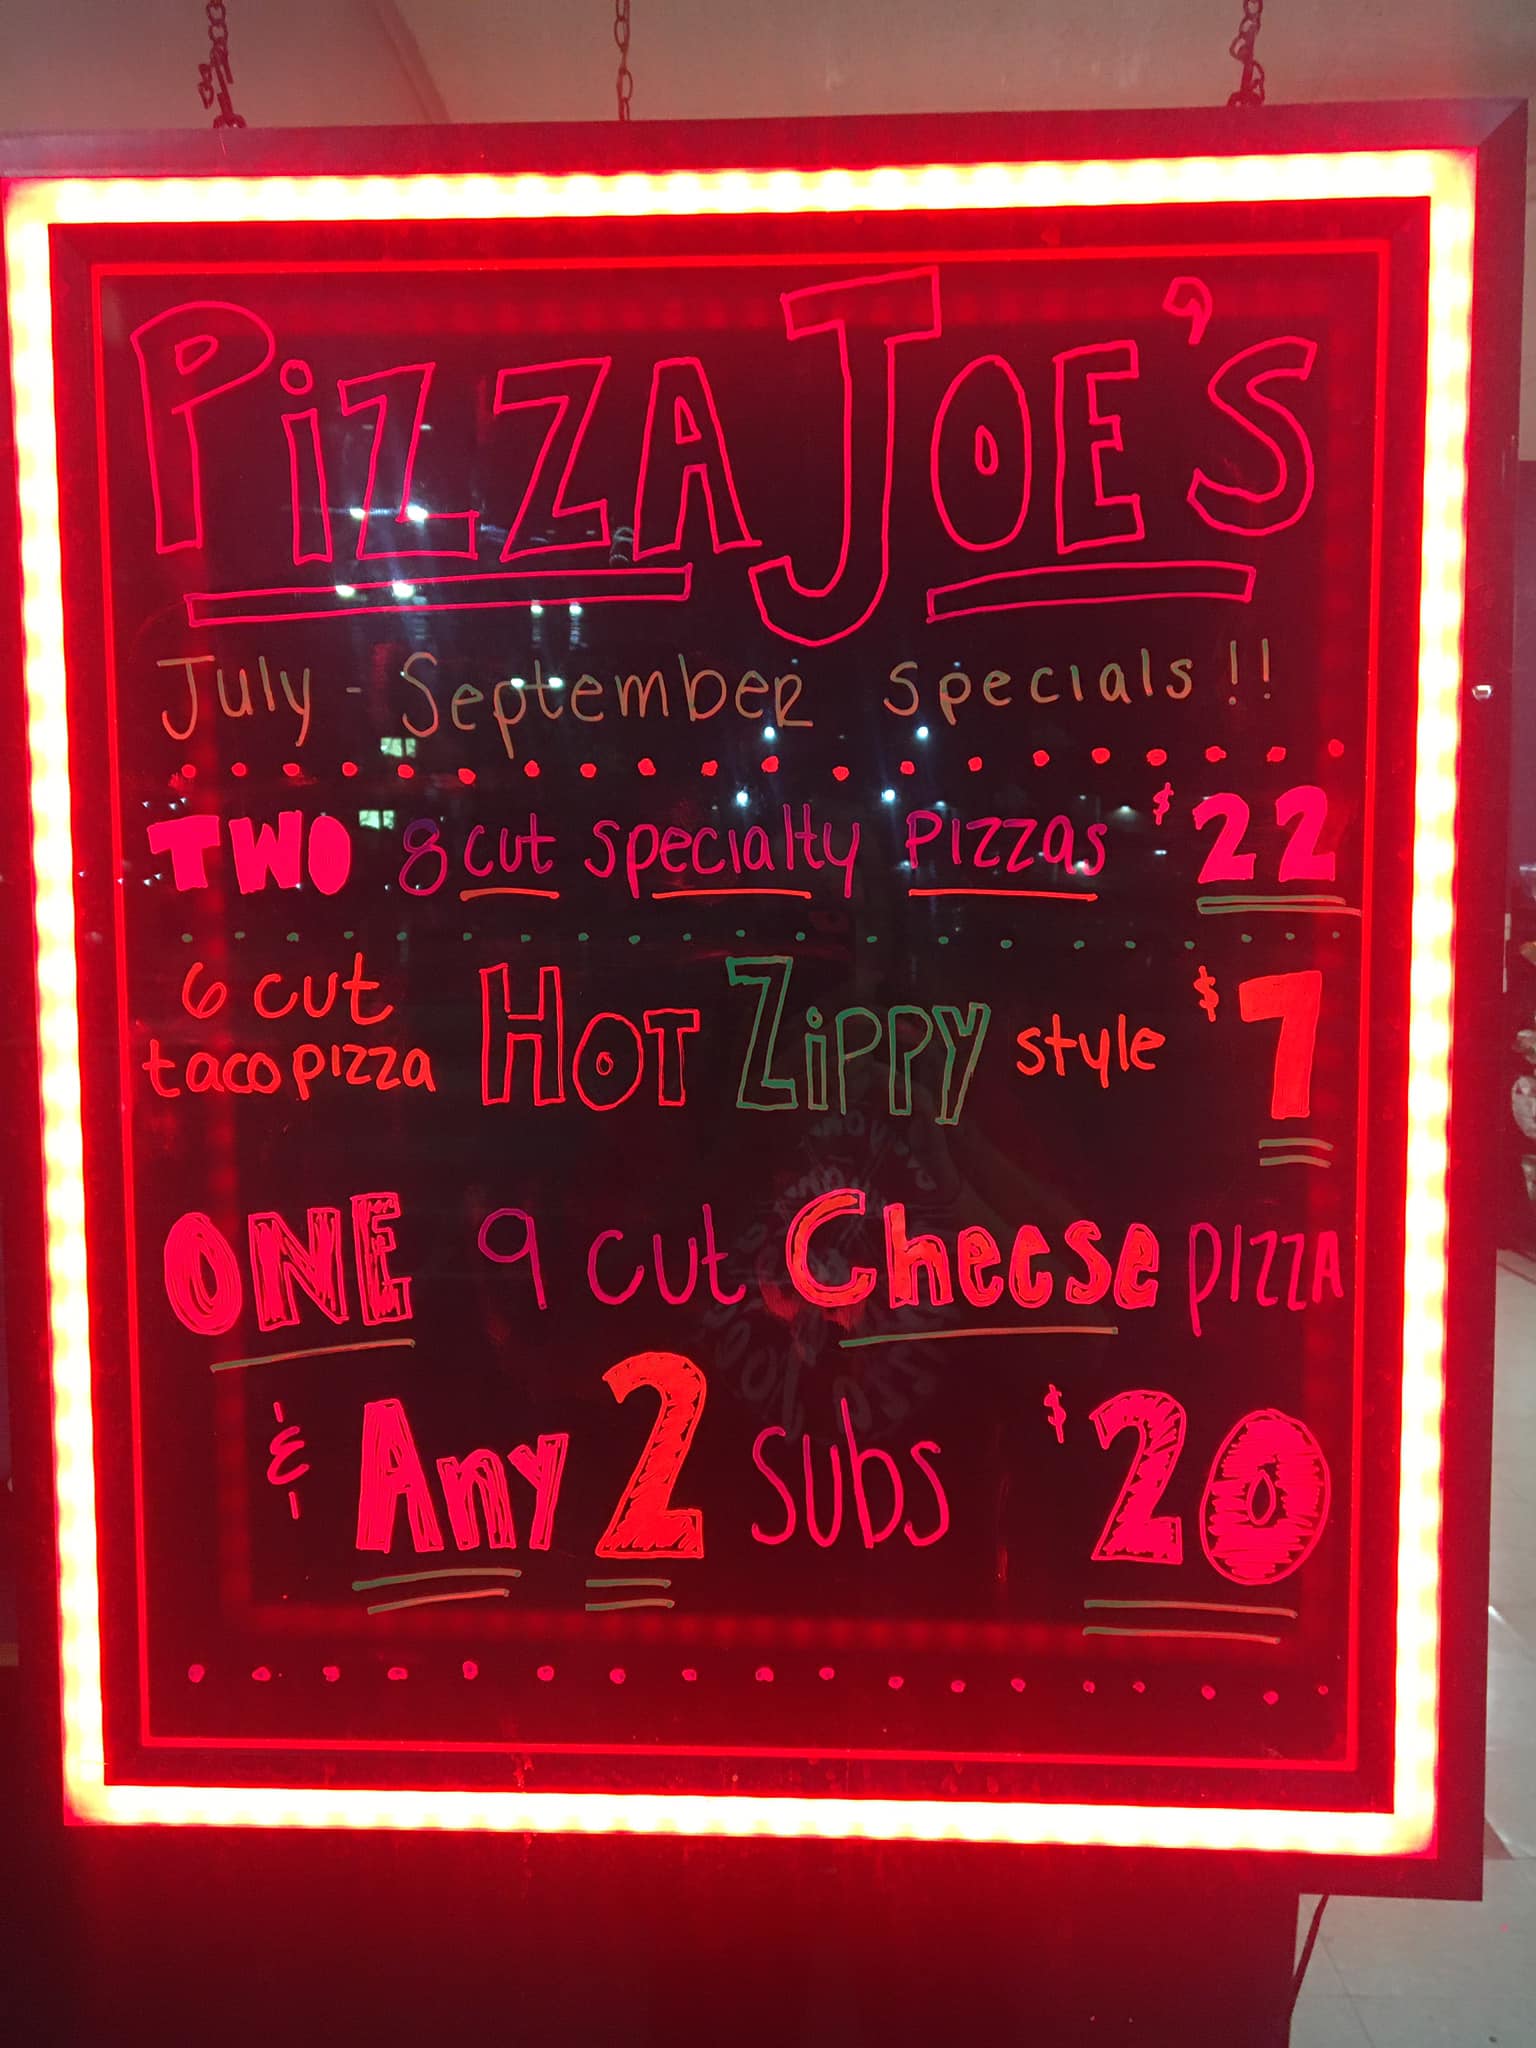 PiZZA JOE'S
July - September specials!!
TWO 8 cut specialty PIZZAS $22
6 cut taco pizza HOT ZiPPY style $7
ONE 9 cut Cheese PIZZA
& Any 2 subs $20